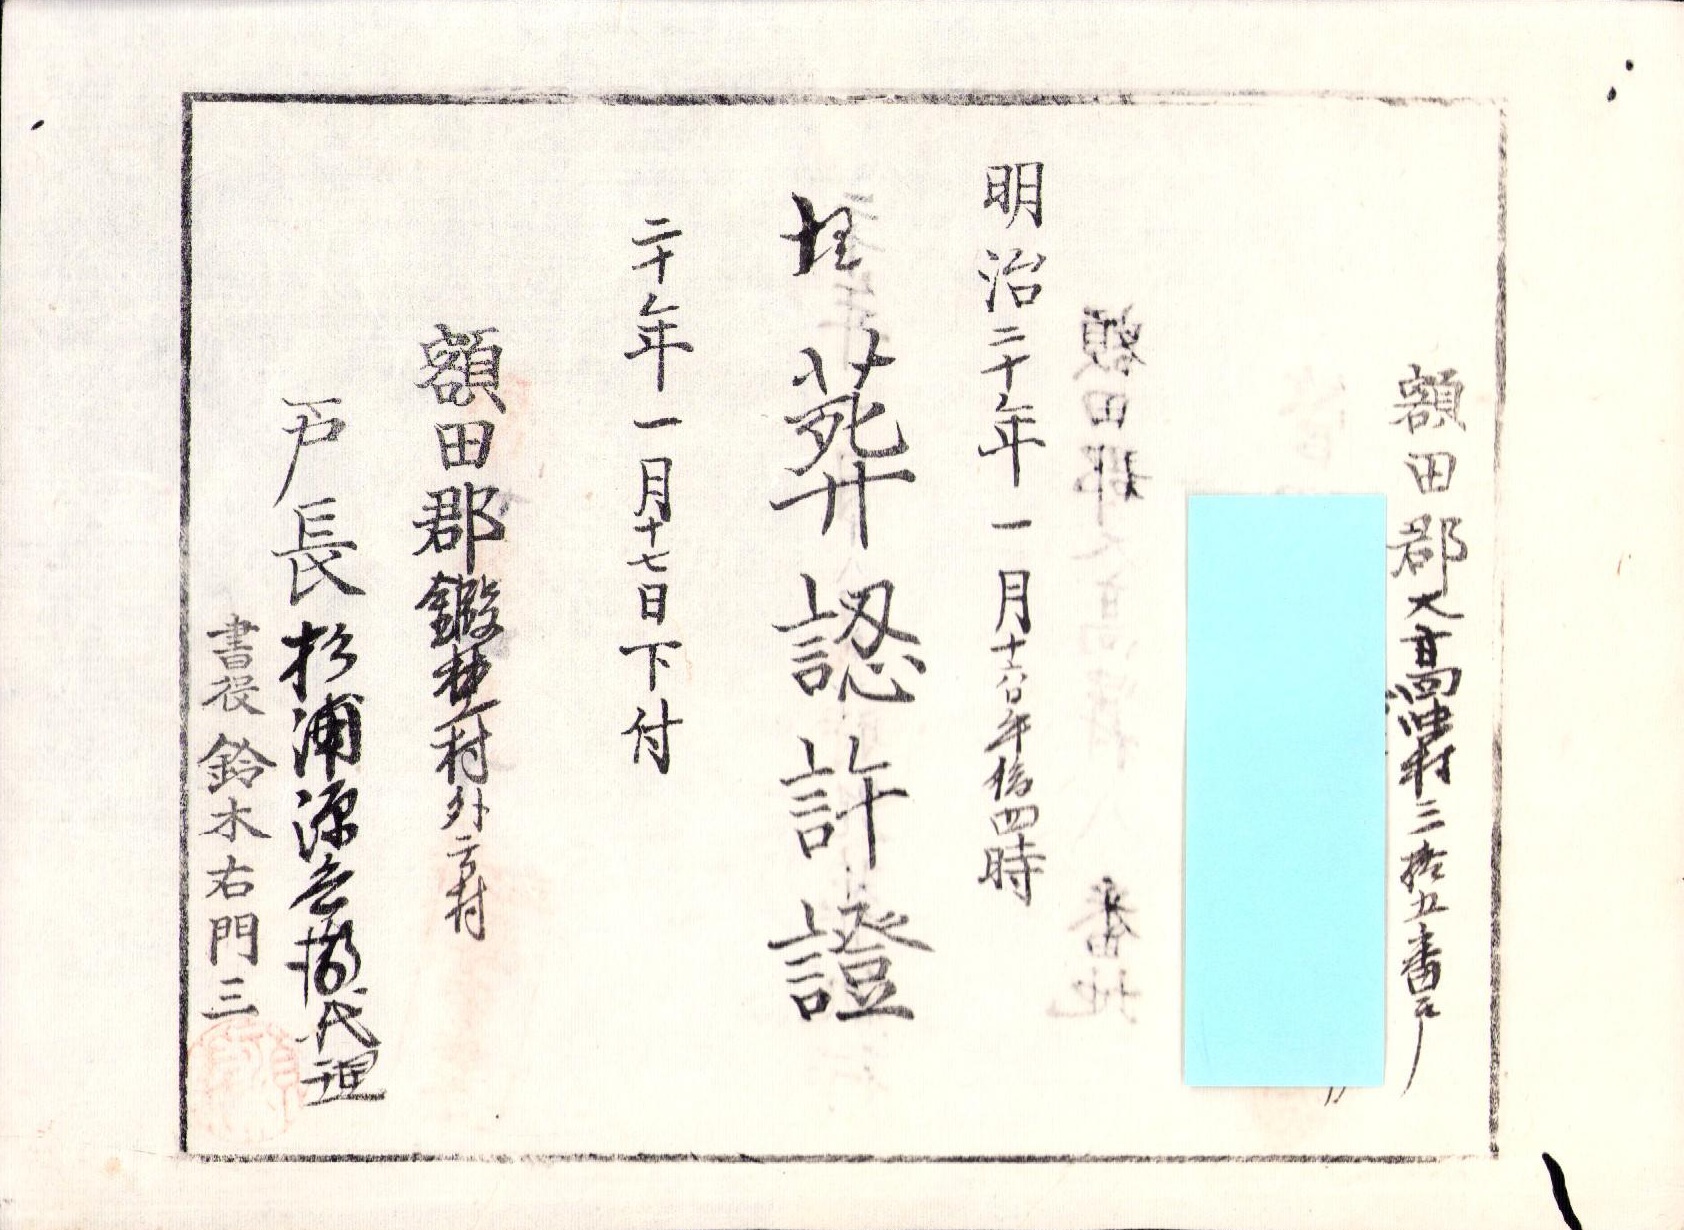 額田郡大高味村三拾五番戸
明治二十年一月十六日午后四時
埋葬認許證
二十年一月十七日下付
額田郡鍛埜村外二方村
戸長杉浦源
代理
書役鈴木右門三